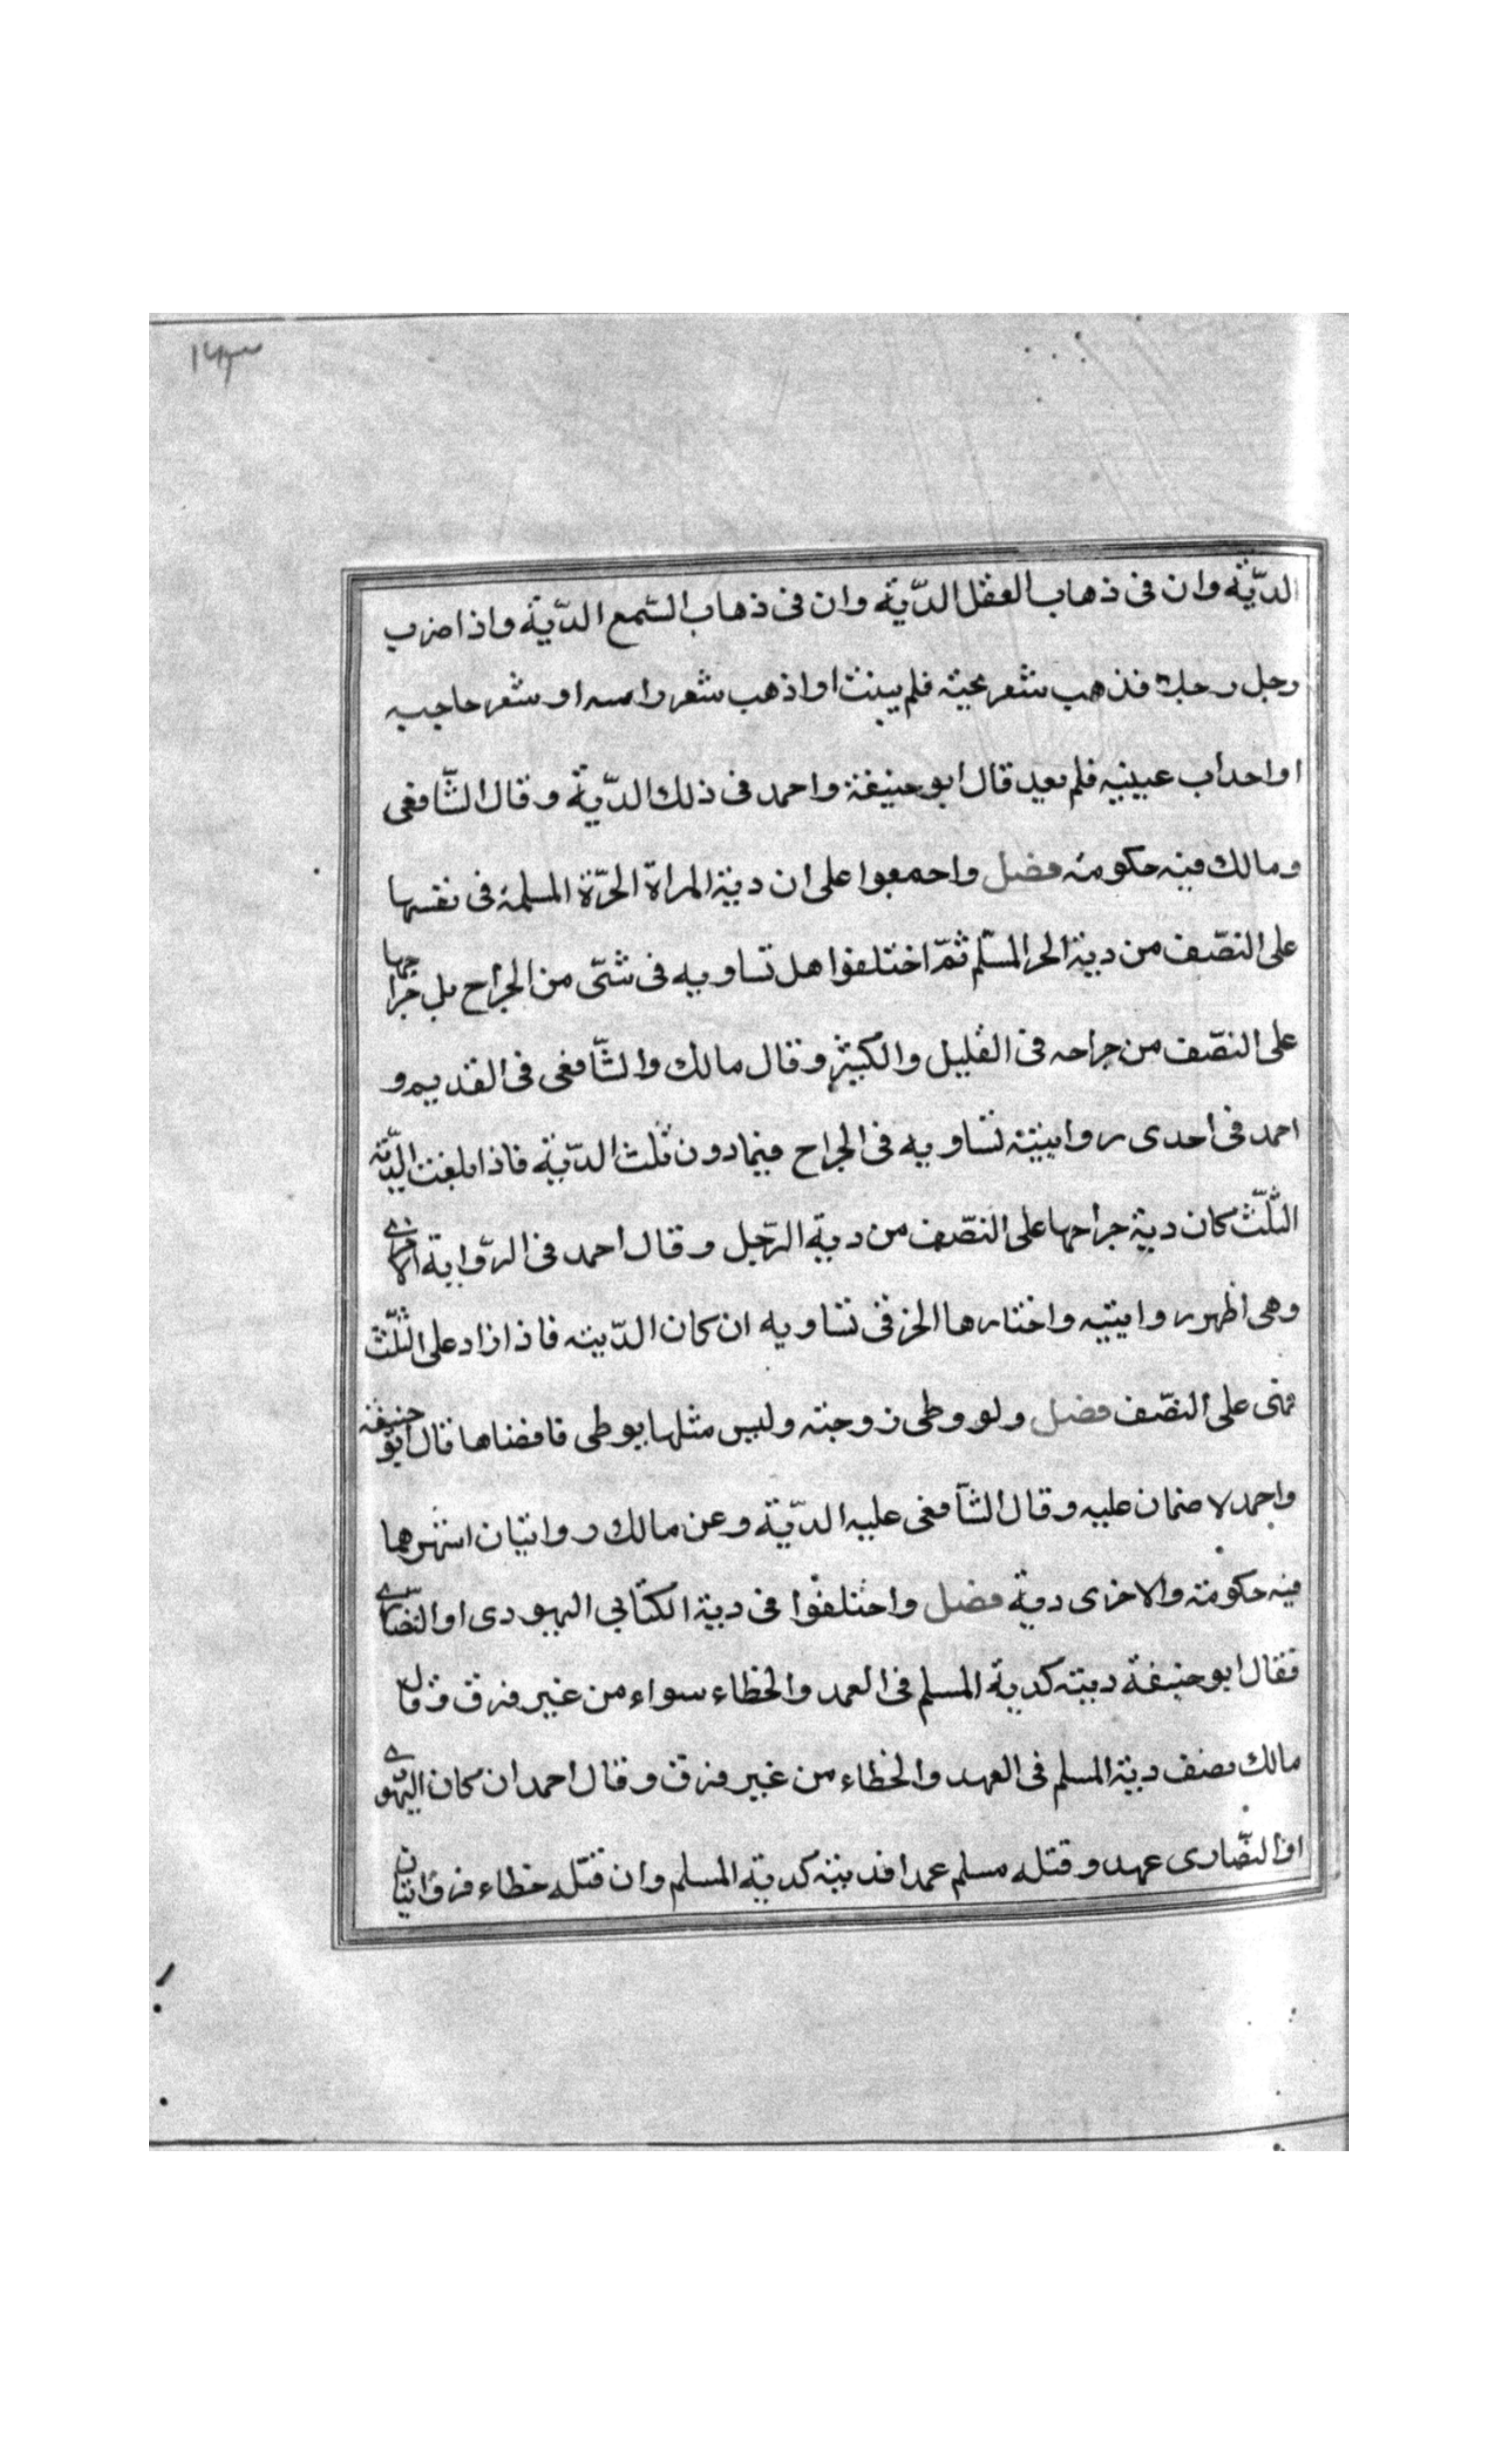 ۱۶۳
الدّية وان فى ذهاب العقل الدّية وان فى ذهاب السّمع الدّية واذا ضرب
رجل رجلا فذهب شعر لحيته فلم ينبت او اذهب شعر راسه او شعر حاجبيه
او اهداب عينيه فلم يعيد قال ابو حنيفة واحمد فى ذلك الدّية وقال الشّافعى
ومالك فيه حكومة فصل واجمعوا على ان دية المراة الحرّة المسلمة فى نفسها
على النصّف من دية الحر المسّلم ثمّ اختلفوا هل تساويه فى شىّ من الجراح بل جراحها
على النصّف من جراحه فى القليل والكبير وقال مالك والشّافعى فى القديم و
احمد فى احدى روايتيه تساويه فى الجراح فيما دون ثلث الدّية فاذا بلغت الدّية
الثّلّث كان دية جراحها على النصّف من دية الرّجل وقال احمد فى الرّواية الاخرى
وهى اظهر روايتيه واختارها الخرقى تساويه ان كان الدّيته فاذا زاد على الثّلّث
فهى على النصّف فصل ولو وطى زوجته وليس مثلها يوطى فافضاها قال ابو حنيفة
واحمد لا ضمان عليه وقال الشّافعى عليه الدّية وعن مالك روايتان اشهرهما
فيه حكومة والاخرى دية فصل واختلفوا فى دية الكتابي اليهودى او النصارى
فقال ابو حنيفة ديته كدية المسلم فى العمد والخطاء سواء من غير فرق وقال
مالك نصف دية المسلم فى العهد والخطاء من غير فرق وقال احمد ان كان اليهودى
او النصّارى عهد وقتله مسلم عمدا فديته كدية المسلم وان قتله خطاء فروايتان